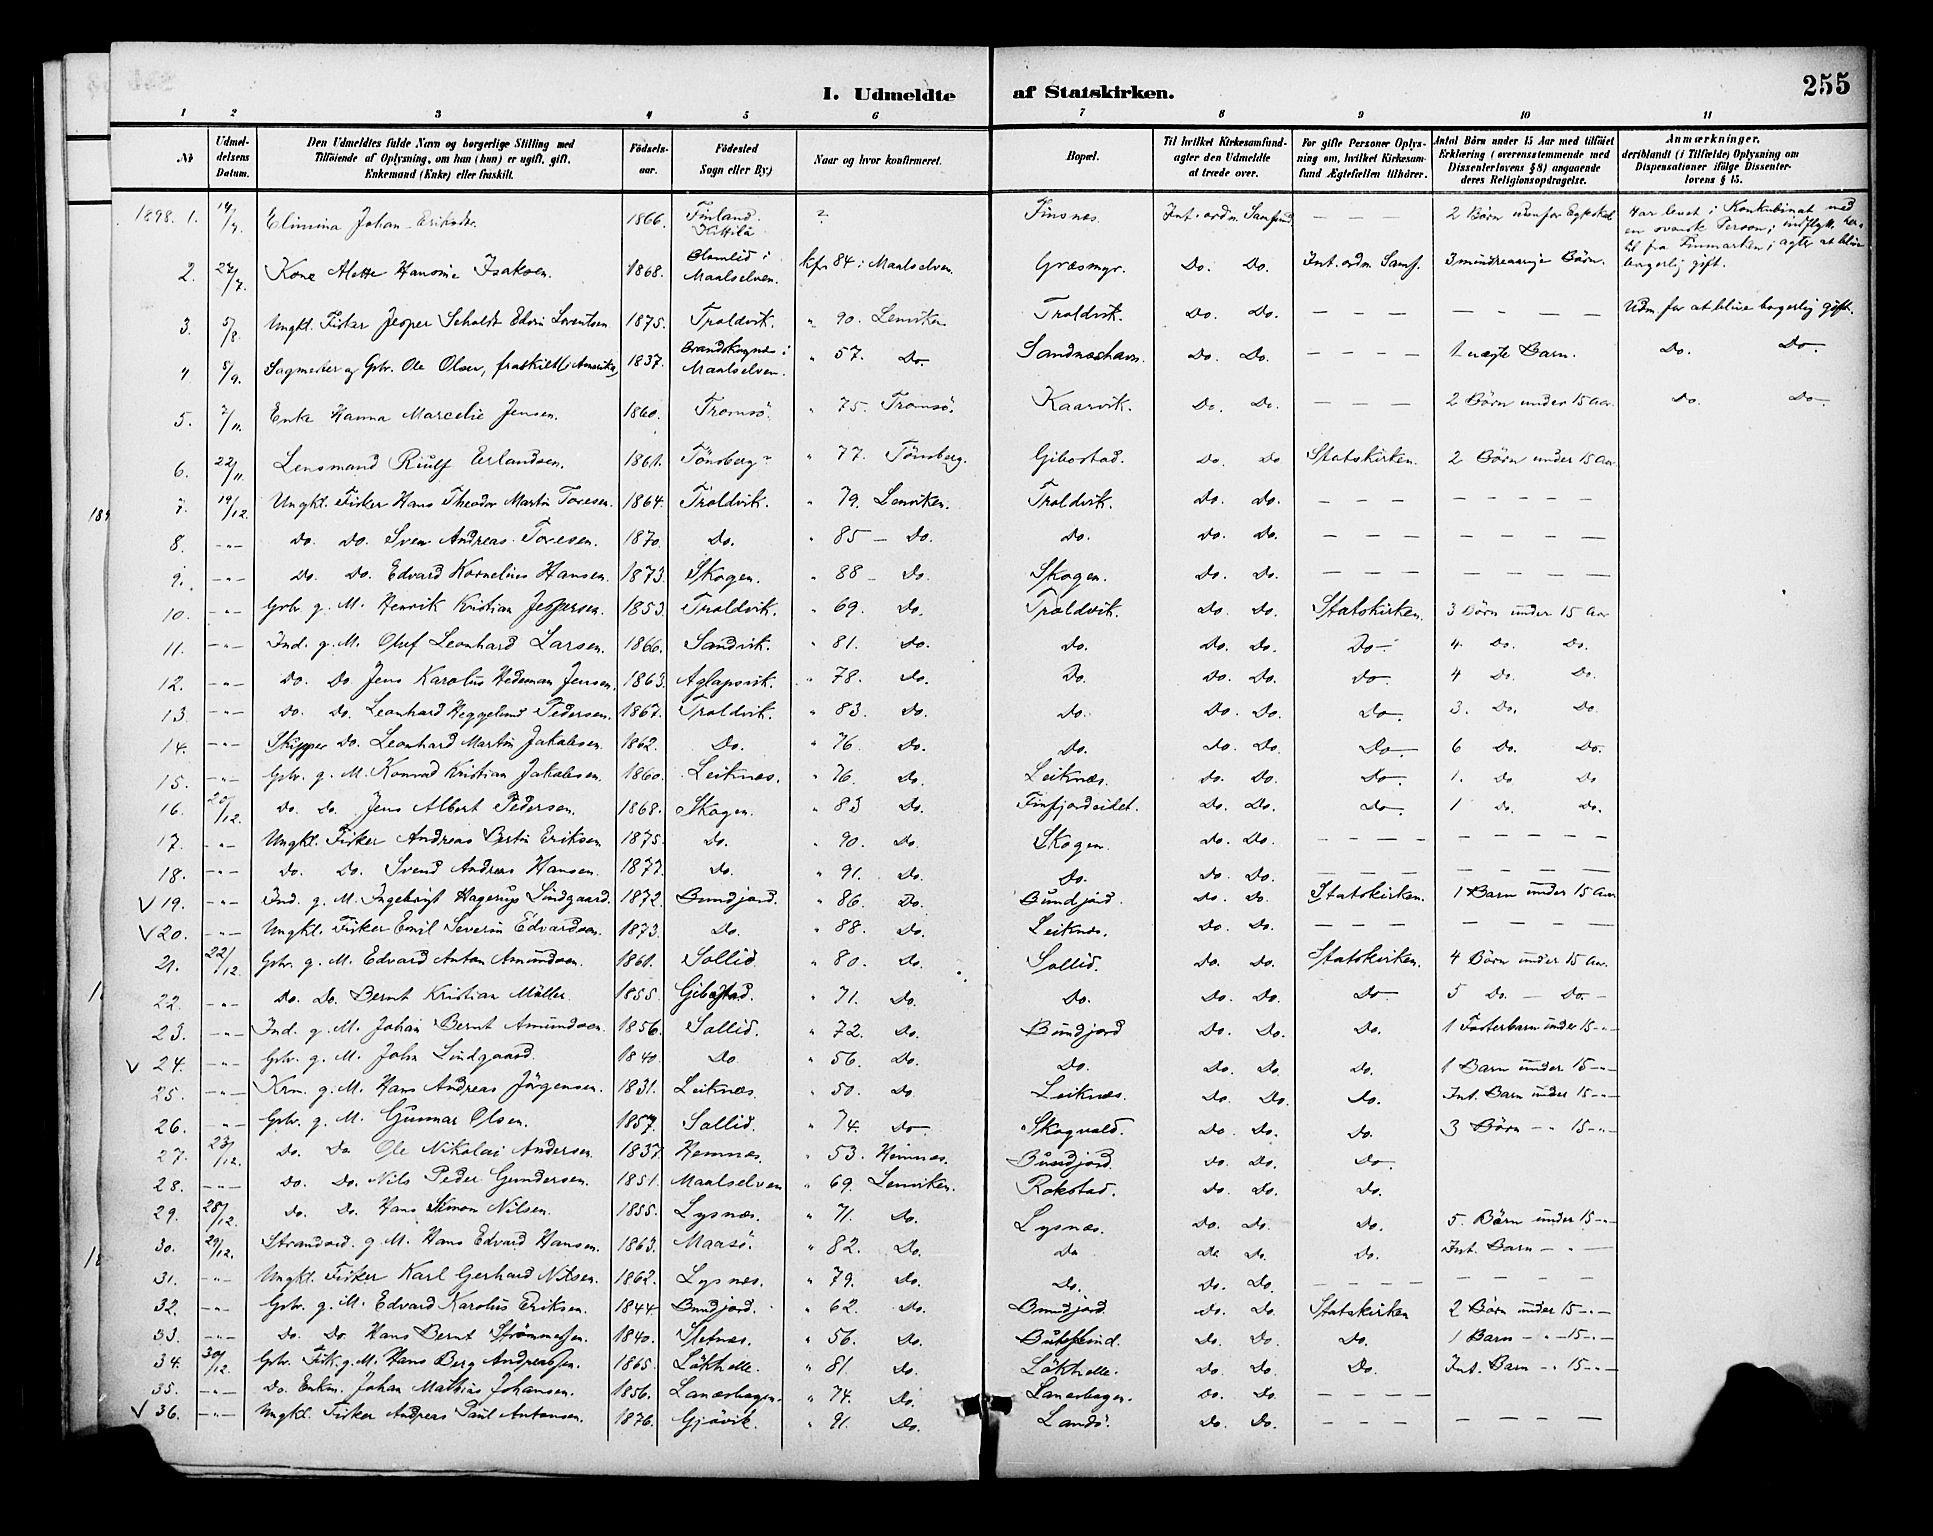 255
I. Udmeldte af Statskirken.
1 2 3 4 5 6 7 8 9 10 11
No
Udmeldelsens Datum.
Den Udmeldtes fulde Navn og borgerlige Stilling med Tilføiende af Oplysning, om han (hun) er ugift, gift, Enkemand (Enke) eller fraskilt.
Fødselsaar.
Fødested Sogn eller By.)
Naar og hvor konfirmeret.
Bopæl.
Til hvilket Kirkesamfund agter den Udmeldte at træde over.
For gifte Personer Oplysning om, hvilket Kirkesamfund Ægtefællen tilhører.
Antal Børn under 15 Aar med tilføiet Erklæring (overensstemmende med Dissenterlovens § 8) angaaende deres Religionsopdragelse.
Anmærkninger, deriblandt (i Tilfælde) Oplysning om Dispensationer ifølge Dissenterlovens § 15.
1898. 1. Elimina Johan 1866. Finland. Kittilä ? Finsnes. Int. ordn. Samfund — — — 2 Børn udenfor Egteskab Har levet i Konkubinat med en svensk Person; indflytt. her til fra Finmarken; agter at blive borgerlig gift.
2. 27/7. Kone Alette Hansine Isaksen. 1868. i Maalselven. kfr 84 i Maalselven Græsmyr. Do. Do. Int. ordn. Samf. 3 mindreaarige Børn.
3. 5/8. Ungkl. Fisker Jesper Seholdt Edvin Lorentsen 1875. Troldvik. " 90. Lenviken Troldvik. Do. Do. — — — — — — — — Udm for at blive borgerlig gift.
4 8/9. Sagmester og Gbr. Ole Olsen, fraskilt (i Amerika) 1837. i Maalselven. " 57. Do Sandneshavn. Do. Do. — — — — 1 uægte Barn. Do. Do.
5. 7/11. Enke Hanna Marcelie Jensen. 1860. Tromsö. " 75. Tromsö. Kaarvik. Do. Do. — — — — 2 Børn under 15 Aar. Do. Do.
6. 22/11. Lensmand Riulf Erlandsen. 1861. Tönsberg? " 77. Tönsberg. Gibostad. Do. Do Statskirken. 2 Børn under 15 Aar
7. 19/12. Ungkl. Fisker Hans Theodor Martin Toresen. 1864. Troldvik. " 79. Lenviken. Troldvik. Do. Do. — — — — — — — — —
8. –"– Do. Do. Sven Andreas Toresen. 1870. Do. " 85 – Do. Do. Do. Do. — — — — — — — — —
9. –"– Do. Do. Edvard Kornelius Hansen. 1873. Skogen. " 88 – Do. Skogen. Do. Do. — — — — — — — — —
10. –"– Gbr. g. M. Henrik Kristian Jespersen. 1853. Troldvik. " 69. Do. Troldvik. Do. Do. Statskirken. 3 Børn under 15 Aar
11. –"– Ind. g. M. Oluf Leonhard Larsen. 1866. Sandvik. " 81. Do. Do. Do. Do. Do. 4. Do. Do.
12. –"– Do. Do. Jens Karolus Hedeman Jensen. 1863. Aglapsvik. " 78. Do. Do. Do. Do. Do. 4 Do. Do.
13. –"– Do. Do. Leonhard Heggelund Pedersen. 1867. Troldvik. " 83. Do. Do. Do. Do. Do. 3. Do. Do.
14. –"– Skipper Do. Leonhard Martin Jakobsen. 1862. Do. " 76. Do. Do. Do. Do. Do. 6 Do. Do.
15. –"– Gbr. g. M. Konrad Kristian Jakobsen. 1860. Leiknes. " 76. Do. Leiknes. Do. Do. Do. 1. Do Do
16. 20/12. Do. Do. Jens Albert Pedersen. 1868. Skogen. " 83 Do. Finfjordeidet. Do. Do. Do. 1 Do. Do.
17. –"– Ungkl. Fisker Andreas Bertin Eriksen 1875. Do. " 90. Do. Skogen. Do. Do. — — — — — — — — —
18. –"– Do. Do. Svend Andreas Hansen. 1877. Do. " 91. Do. Do. Do. Do. — — — — — — — — —
V 19. –"– Ind. g. M. Ingebrigt Hagerup Lindgaard. 1872. Bundjord. " 86. Do. Bundjord. Do. Do. Statskirken. 1 Barn under 15 Aar
V 20. –"– Ungkl. Fisker Emil Severin Edvardsen. 1873. Do. " 88. Do. Leiknes. Do. Do. — — — — — — — — —
21. 22/12. Gbr. g. M. Edvard Anton Amundsen 1861. Sollid. " 80. Do. Sollid. Do. Do. Statskirken. 4 Børn under 15 Aar.
22. –"– Do. Do. Bernt Kristian Müller. 1855. Gibostad. " 71. Do. Do. Do. Do. Do 5 Do. – Do. –
23. –"– Ind. g. M. Johan Bernt Amundsen 1856. Sollid. " 72. Do. Bundjord Do. Do. Do. 1 Fosterbarn under 15 –"–
V 24. –"– Gbr. g. M. John Lindgaard. 1840. Do " 56. Do. Do. Do. Do. Do. 1 Barn under 15 –"–
25. –"– g. M. Hans Andreas Jörgensen. 1831. Leiknes. " 50. Do Leiknes. Do. Do. Do. Int. Barn under 15 –"–
26. –"– Gbr. g. M. Gunnar Olsen. 1857. Sollid. " 74. Do Skogvold. Do. Do. Do. 3 Børn –"– 15 –"–
27. 23/12. Do. Do Ole Nikolai Andersen 1837 Hemnes. " 53. Hemnes. Bundjord. Do. Do. Do.
28. –"– Do. Do. Nils Peder Gundersen. 1851. Maalselven " 69. Lenviken. Rokstad. Do. Do. Do.
29. 28/12. Do. Do. Hans Simon Nilsen. 1855. Lysnes. " 71. Do. Lysnes. Do. Do. Do. 5. Børn under 15 –"–
30. 29/12. Strandsid. g. M. Hans Edvard Hansen. 1863. Maasö. " 82. Do. Do Do Do. Do. Int. Barn – " –
31. –"– Ungkl. Fisker Karl Gerhard Nilsen. 1862. Lysnes. " 79. Do. Do. Do. Do. — — — — — — — — —
32. –"– Gbr. g. M. Edvard Karolus Eriksen. 1844. Bundjord. " 62. Do. Bundjord Do. Do. Statskirken 2 Børn under 15 –"–
33. –"– Do. Do. Hans Bernt Strömmesen. 1840. " 56. Do. Do. Do. Do. 1 Barn – " – 15 –"–
34. 30/12. Gbr. Fisk. g. M. Hans Berg Andreassen. 1865. Lökhelle. " 81. Do. Lökhelle. Do. Do. Do. Int. Barn –"– 15 –"–
35. –"– Do. Enkm. Johan Mathias Johansen. 1856. Lanesbogen. " 74. Do. Lanesbogen. Do. Do. — — — —
V 36. –"– Ungkl. Fisker Andreas Paul Antonsen. 1876. Gjövik. " 91. Do. Landö. Do. Do. — — — — — — — — —